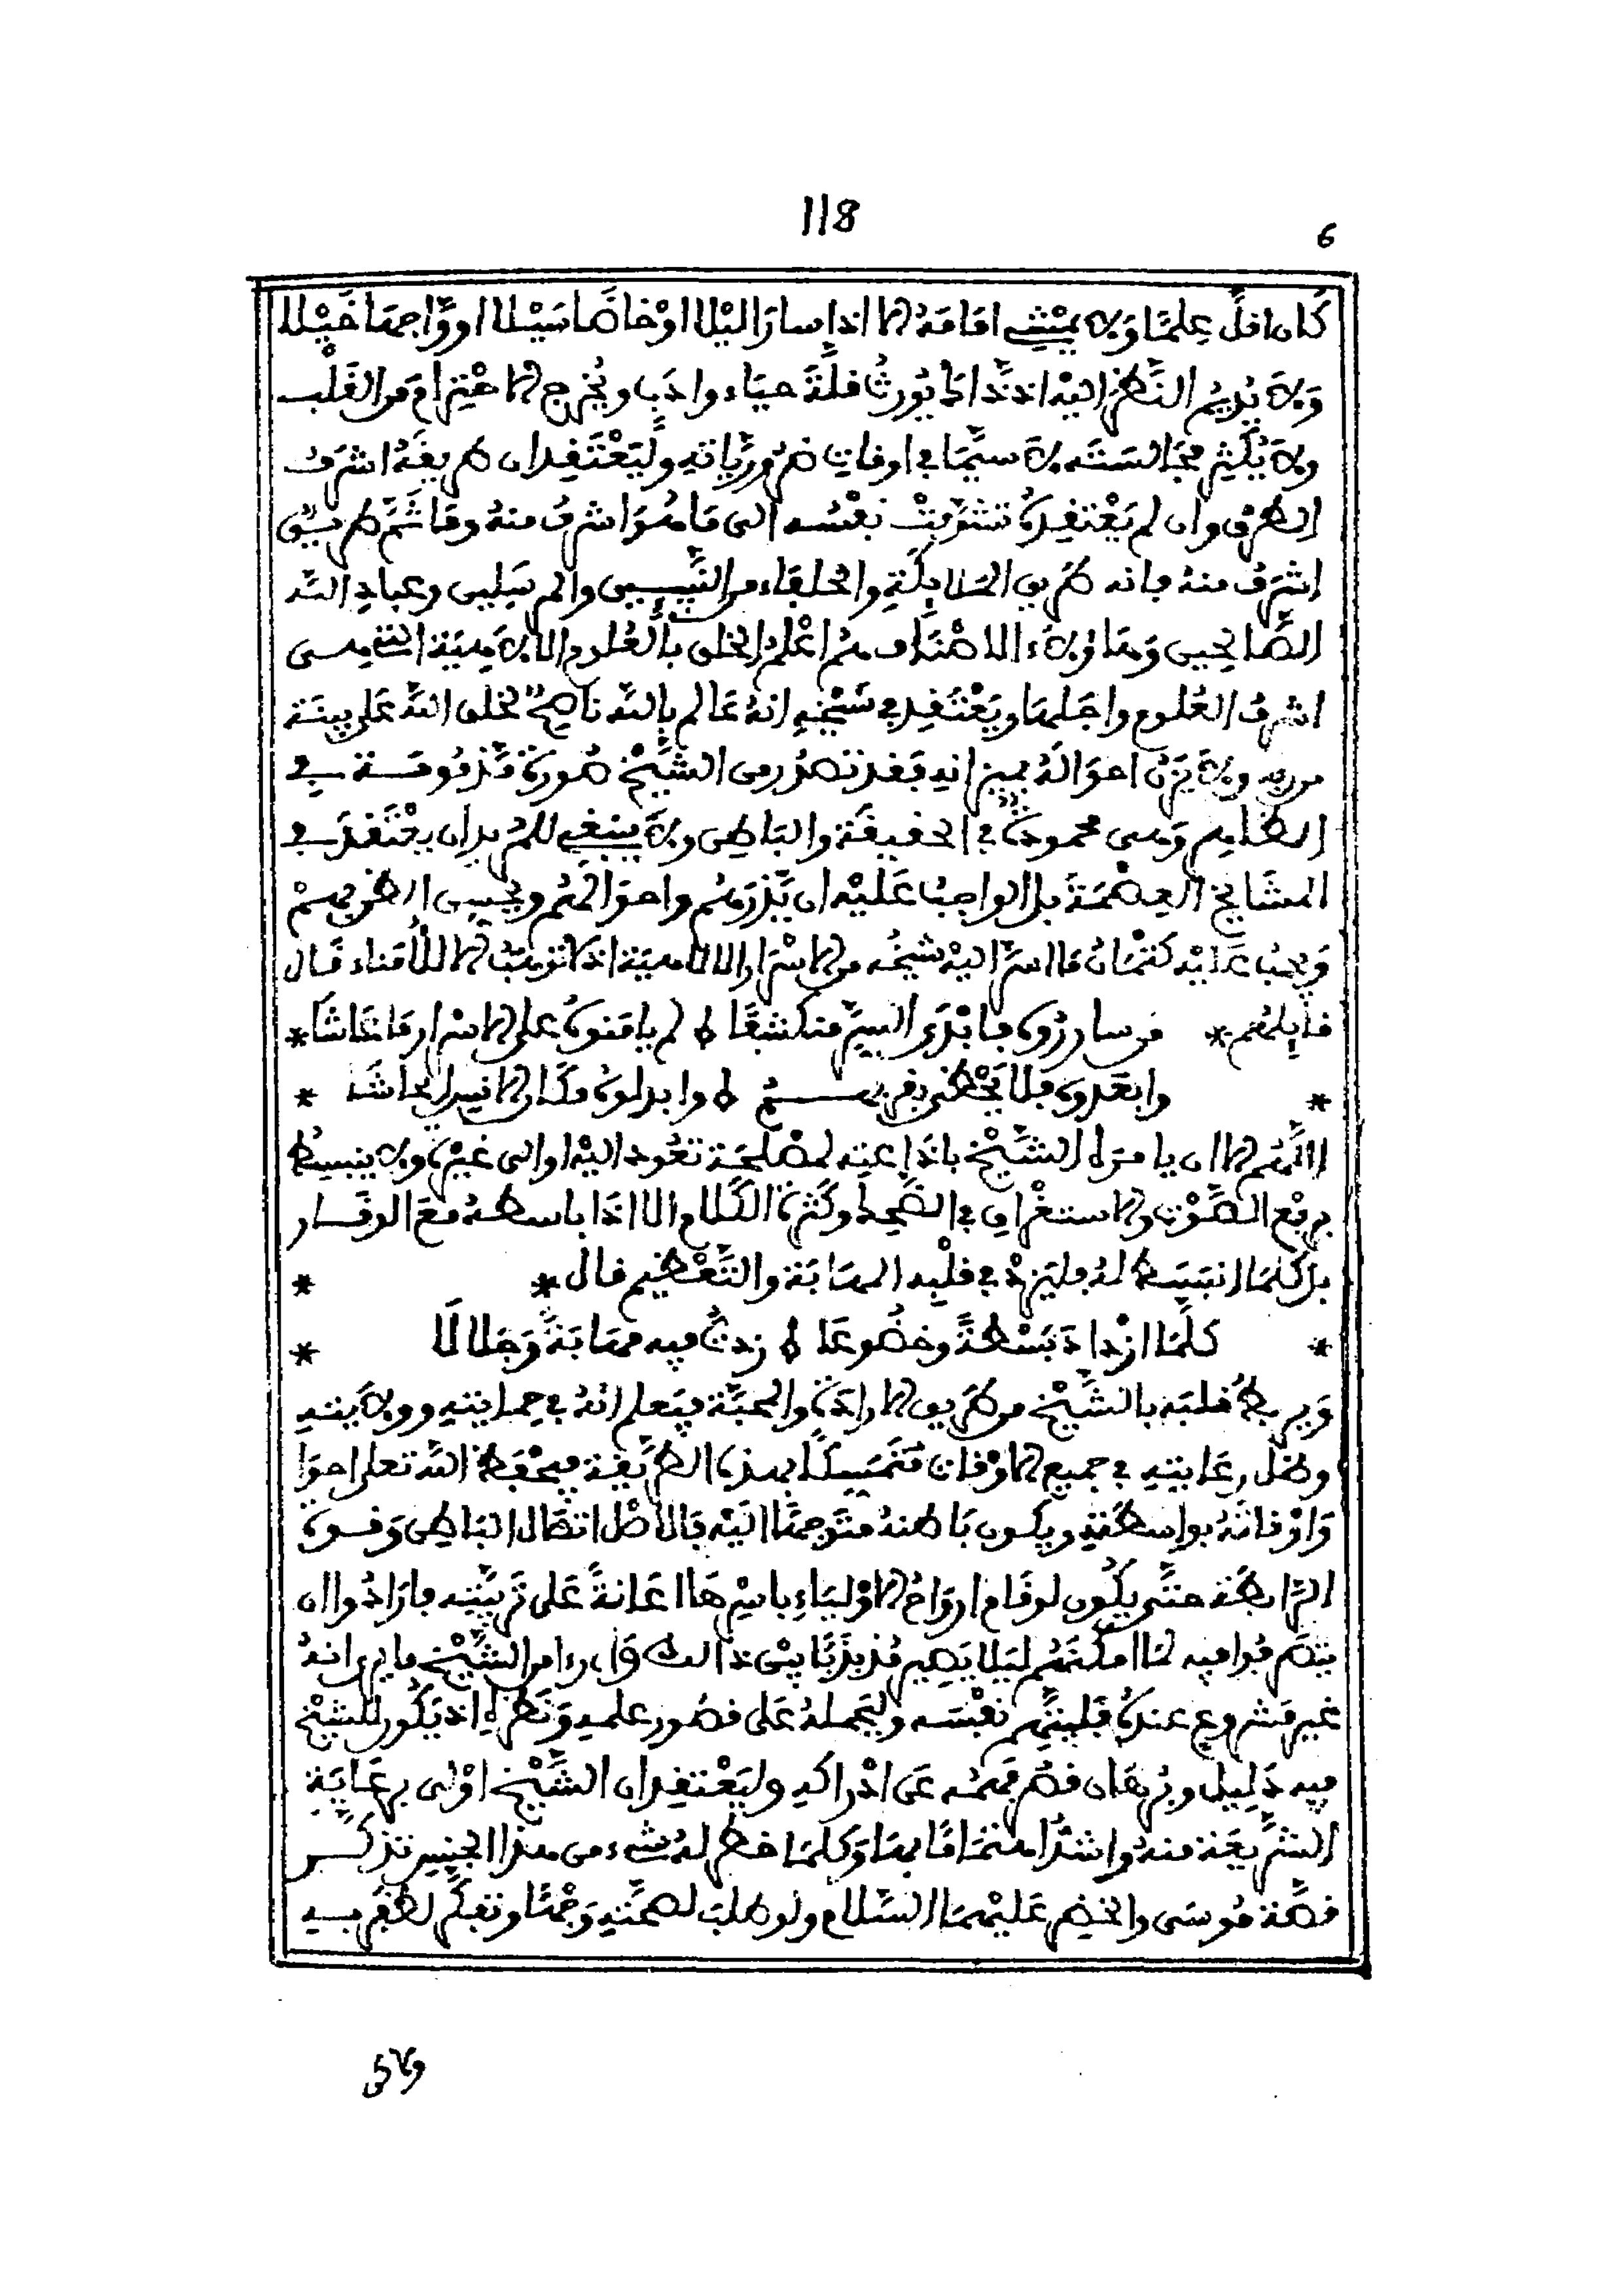 118
6
كَانَ اقلَّ عِلمًا وَلَا يمْشِي امَامَهُ الا اذا سارَا ليْلا اوْ خاضَا سَيْلا او وَّاجهَا خَيْلا
وَلَا يُدِيمُ النَّظرَ اليْه اذ ذَالكَ يُورثُ قلَّةَ حيَاء وادَبٍ ويُخْرِج الاحْتِرَامَ من القَلْب
ولَا يُكْثِر مجَالسَتَه لَا سيَّمَا في اوقاتِ ضرُورِيَّاتهِ ولْيَعْتَقِد ان طريقَهُ اشرَفُ
الطرُقِ وان لم يَعْتَقِد تشوَّفتْ نفْسُه الى مَا هُوَ اشرفُ منهُ ومَا ثَمَّ طريقٌ
اشرَفُ منه فانه طَريق الملائِكَةِ والخلفَاء من النَّبِيـين والمرسَلِين وعِبادِ اللَّه
الصَّالحِين وَهَاؤُلَاء الاصْنَاف هم اعْلمُ الخلق بالعُلوم الالَاهِيَة التي هى
اشرفُ العُلوم واجَلهَا ويَعْتَقِد في شيْخهِ انهُ عَالم باللَّه ناصحٌ لخلق اللَّه عَلى بينَة
من ربه ولَا يَزنُ احوَالَهُ بميزانهِ فقد تصدُر من الشَّيْخ صُورَة مَذمُومَـة في
الظاهر وَهى محمودَة في الحقيقَة والبَاطن ولَا يَنبَغِي للمُريد ان يعْتَقدَ في
المشَايخ العِصْمَةَ بل الواجبُ عَليْه ان يَّذرَهُم واحوَالهُم ويحسِن الظن بهمْ
وَيجبُ عَليْه كتْمَانُ مَا اسرَّ اليْه شيخُه من الاسْرَار الالاهِيَة اذ لا توهَبُ الا للأُمَناء قال
قايِلهُم * من سارروه فابْدَى السِرَّ منكشفًا ه لم يامَنوهُ على الاسْرار مَا عَاشَا *
* وابعَدوه فلا يَحْظى بقربهـم ه وابدلوهُ مكَان الانسِ ايحاشَا *
اللَّهُم الا ان يامرَه الشَّيْخ باذَاعتِه لمصْلحَة تعُود اليْه او الى غيْره ولَا ينبسِط
برفْع الصَّوْت والاستغْراقِ في الضَّحِك وكَثرَة الكَلام الا اذَا باسطهُ مَعَ الوقَـار
بل كلمَا انبسَط لهُ فليَزِدْ في قلْبِه المهَابَة والتَّعْظيم قال *
*
* كلَّمَا ازْدادَ بَسْطةً وخضُوعَا ه زدتُّ فيه مهَابَةً وَجَلالَا *
وَيربط قلبَه بالشَّيْخ من طَريق الارادَة والمحبَّة فيَعلم انهُ في حِمايتهِ وولَايتهِ
وظلِّ رِعَايتِهِ في جميع الاوْقات مُتَمَسِكًا بهذه الطَّريقَة فيحْفَظ اللَّه تعلى احوَا
وَاوْقاتَهُ بواسطَتهِ ويكون بَاطنهُ متَوجهًا اليْه فالاصْل اتصَال البَاطن وَقـوة
الرَّابطَة حتَّى يكُون لو قَام ارْوَاحُ الاوْليَاءِ باسْرِهَا اعَانةً عَلى تَربيَّتِه فارَادُوا ان
يتصَرفُوا فيه لمَا امكَنَهُم ليَلا يَصِير مُذبذَبًا بيْن ذَالك وَاِن رءا من الشَّيْخ ما يرى انهُ
غير مَشروعٍ عندَهُ فَليتَّهِم نفْسَه وليَحْملهُ عَلى قصُور علمهِ وَنظرهِ اذ يكُون للشيْخ
فيه دَلِيل وبُرهَان قصُر فهمُه عَن ادْرَاكهِ وليَعْتقِد ان الشَّيْخ اوْلى برعَايَة
الشَّريعَة منهُ واشدُّ اهتمَامًا بهَا وَكلمَا خطر لهُ شيء من هذا الجنس تذكَّـر
قصَّة مُوسَى والخضِر عَليْهمَا السَّلام ولو طلبَ لصحَّتهِ وَجْهًا وتفكَّر لظفَر بـه
ولاكن